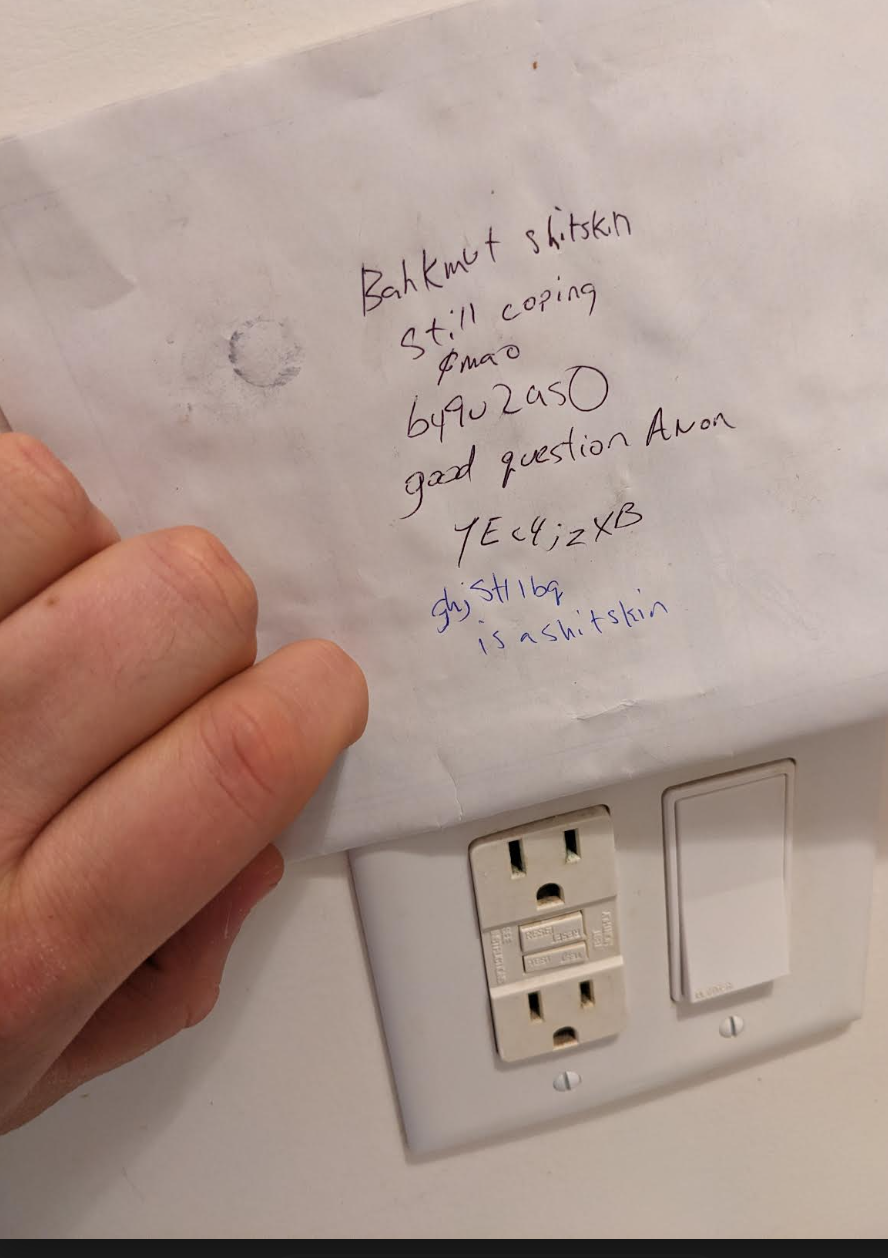 Bahkmut shitskin
still coping
lmao
by9u2asO
good question Anon
YEc4jzXB
ghj5H1bq
is a shitskin
RESET
TEST